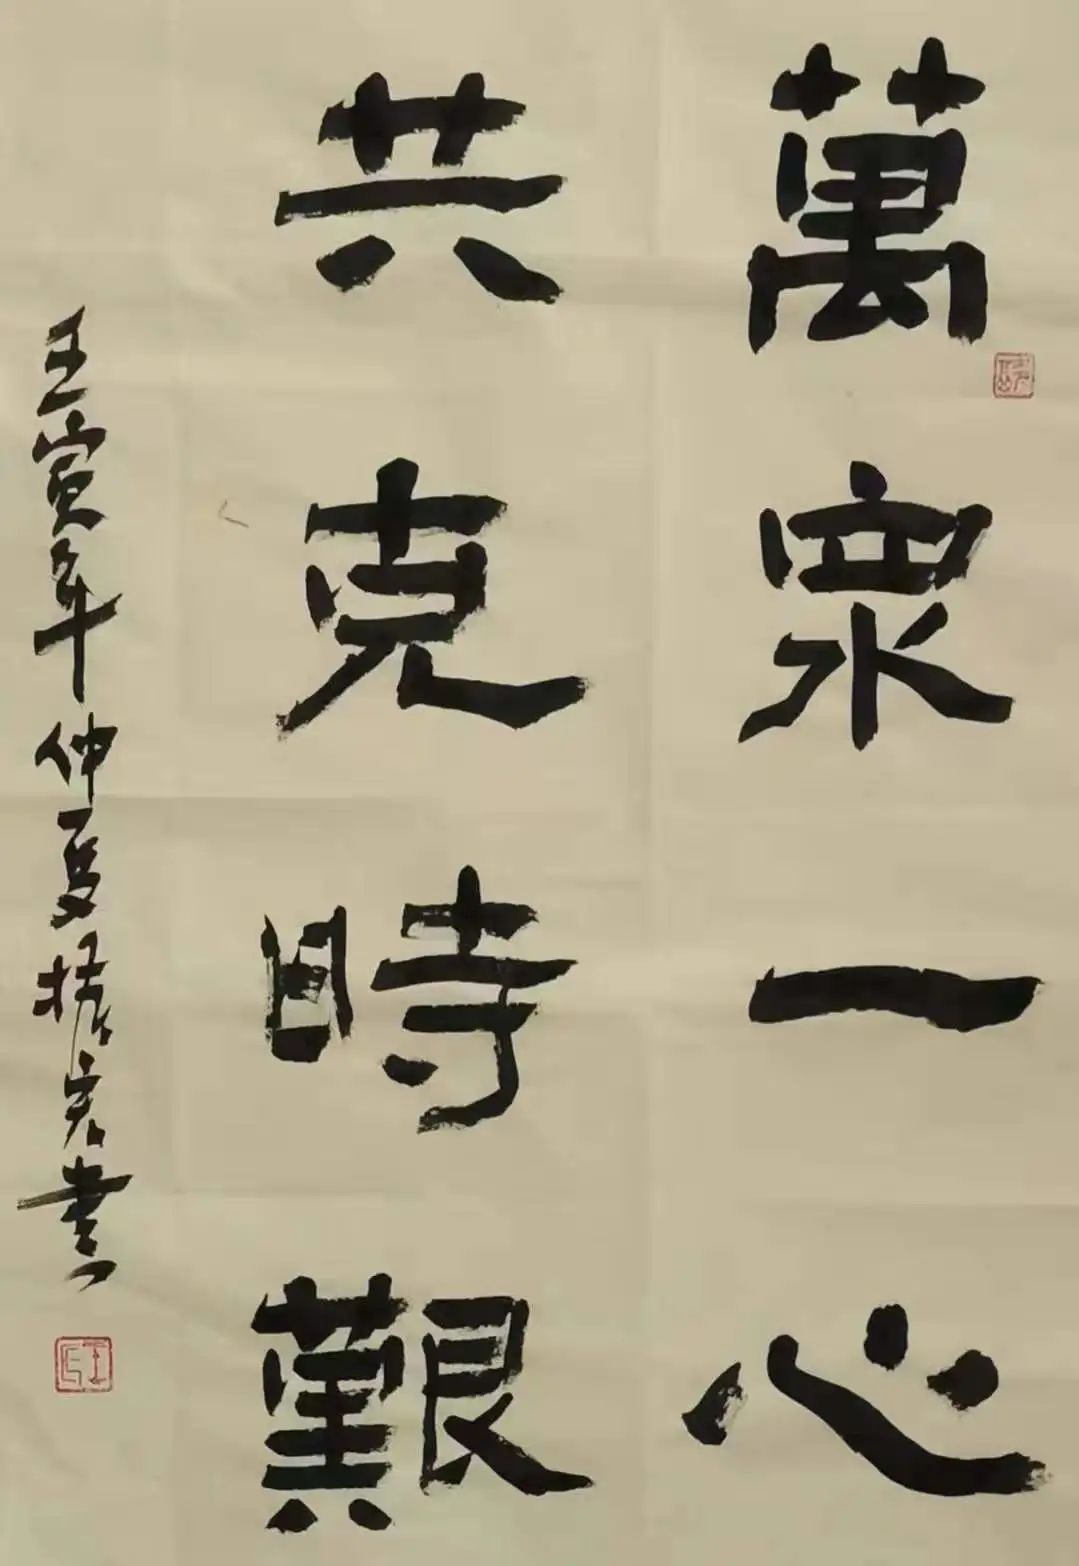 萬衆一心
共克時艱
壬寅年仲夏振宏書